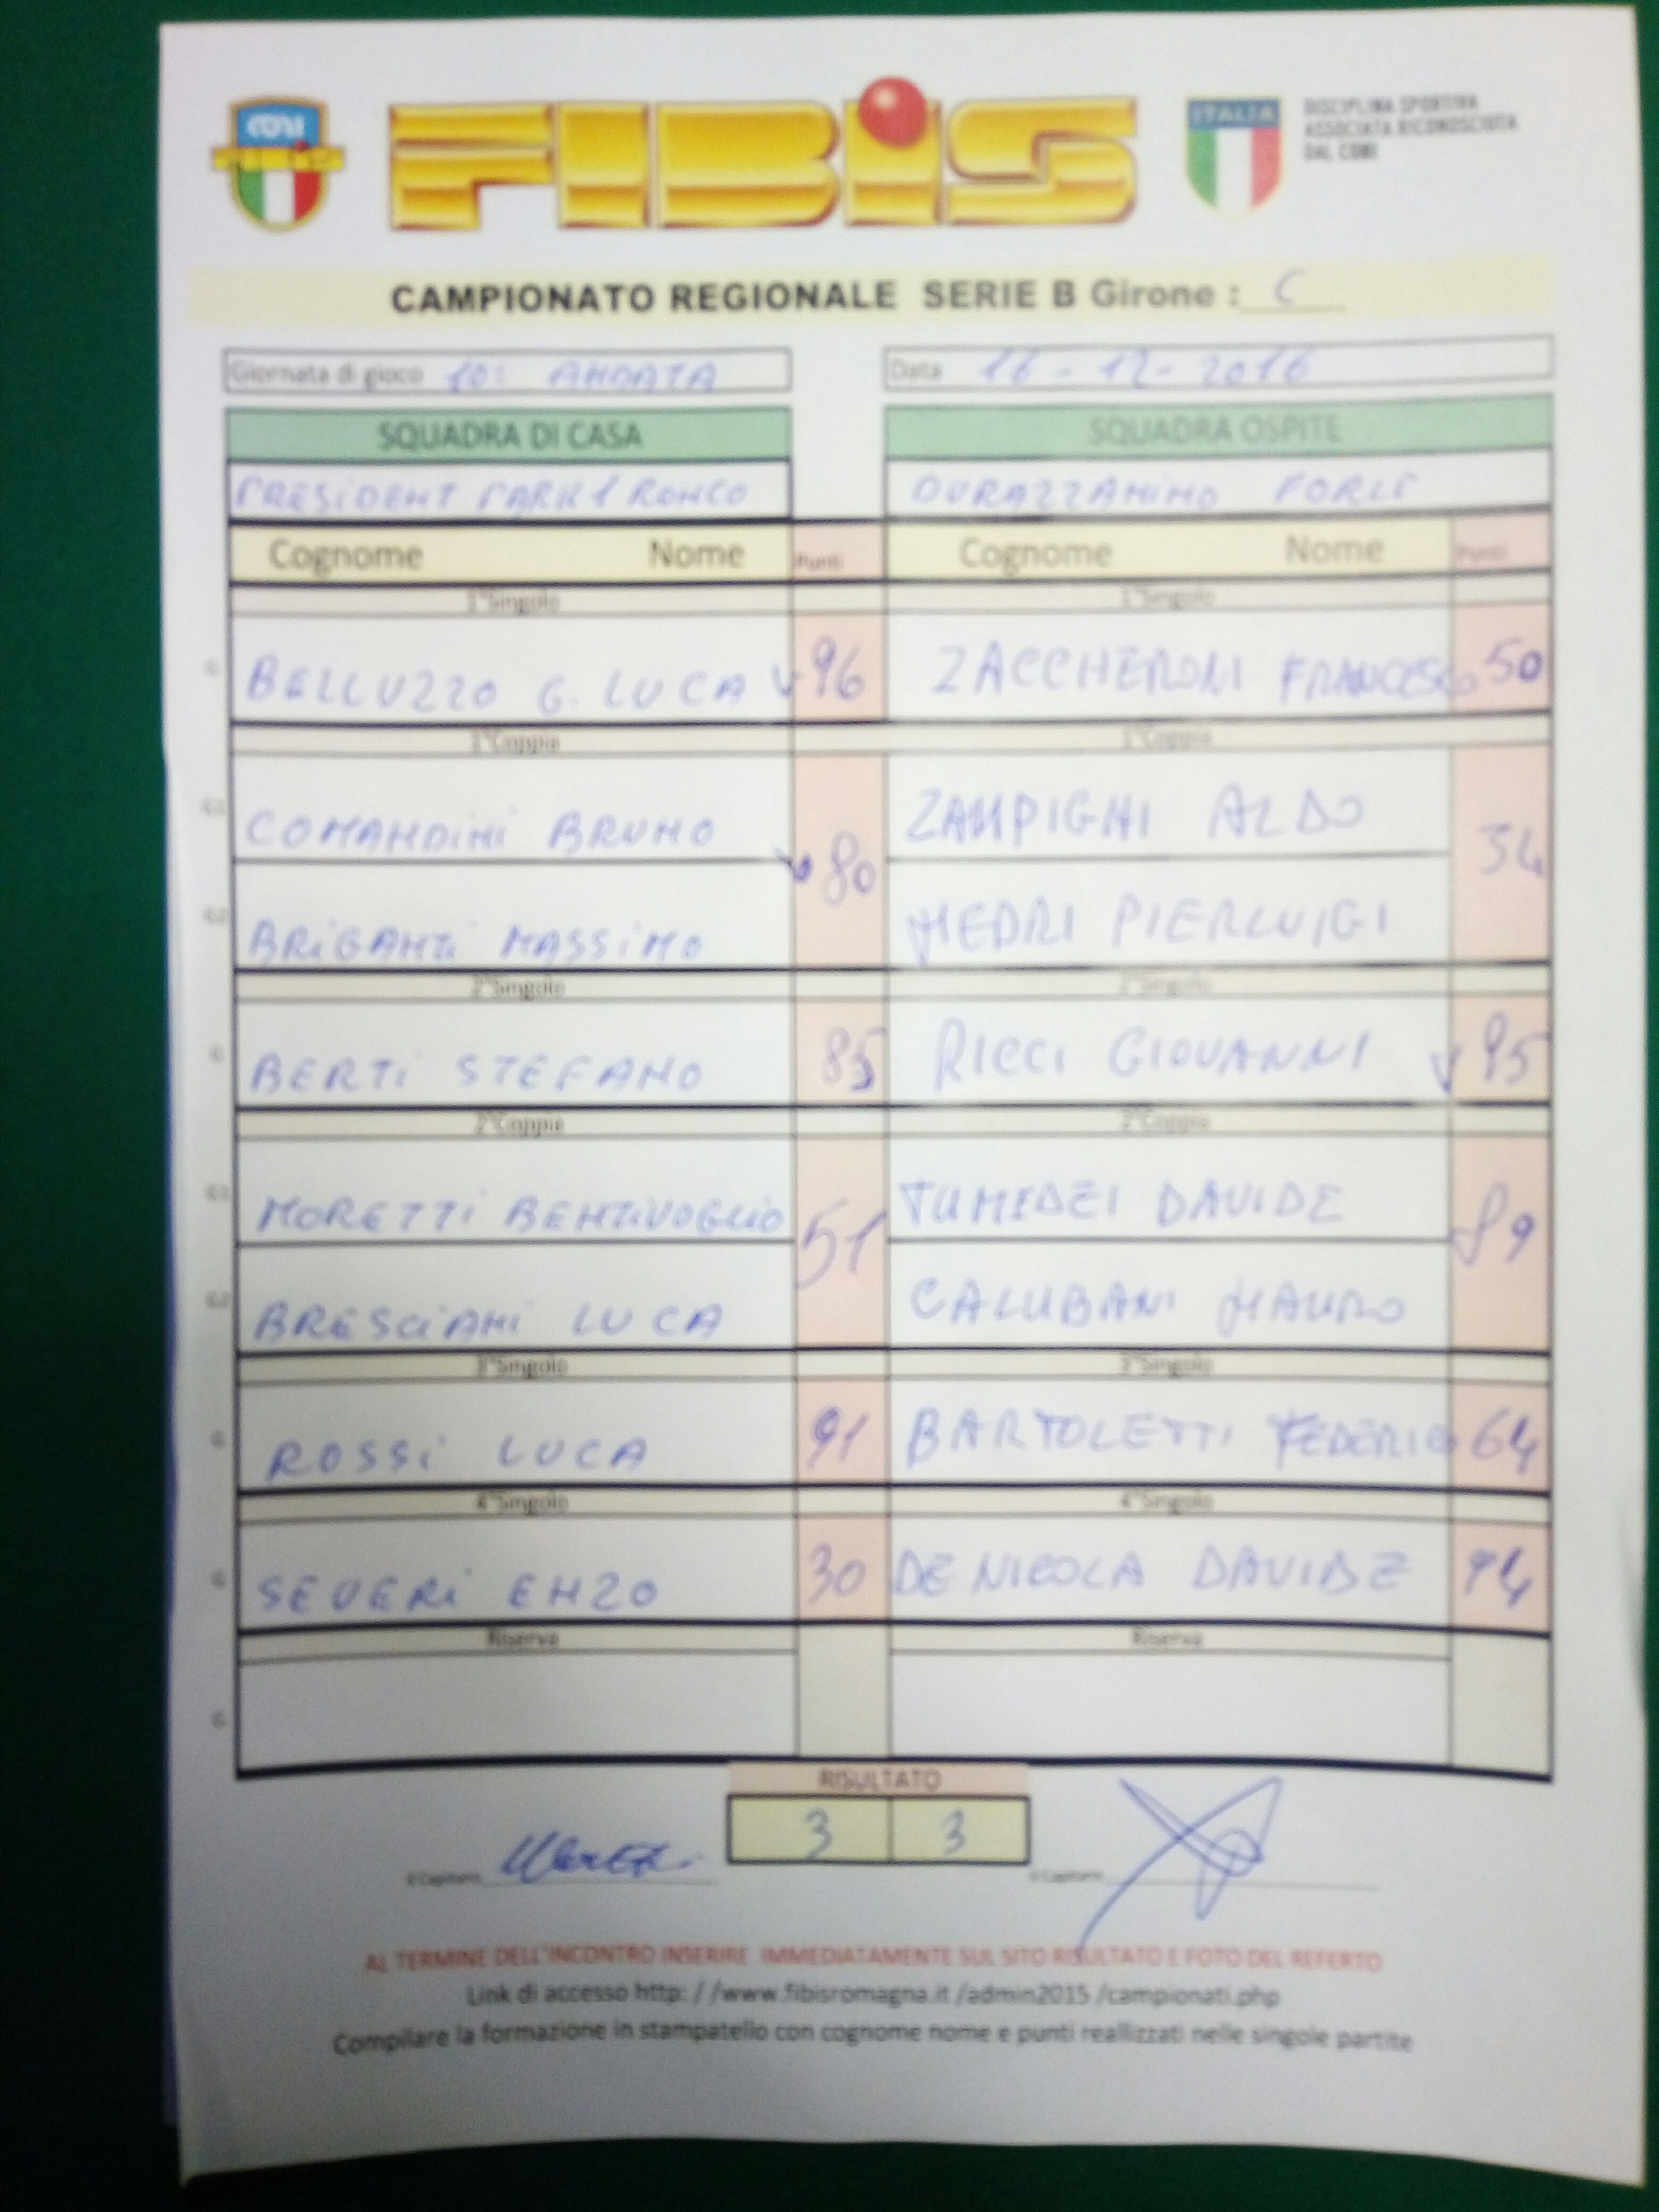 CONI
FIBiS
ITALIA
DISCIPLINA SPORTIVA
ASSOCIATA RICONOSCIUTA
DAL CONI
CAMPIONATO REGIONALE SERIE B Girone : C
Giornata di gioco 10° ANDATA
Data 16-12-2016
SQUADRA DI CASA
SQUADRA OSPITE
PRESIDENT PARK 1 RONCO
DURAZZANINO FORLI
Cognome Nome Punti
Cognome Nome Punti
1°Singolo
1°Singolo
BELLUZZO G. LUCA 96
ZACCHERONI FRANCESCO 50
1°Coppia
1°Coppia
COMANDINI BRUNO
ZAMPIGHI ALDO
80
34
BRIGANTI MASSIMO
MEDRI PIERLUIGI
2°Singolo
2°Singolo
BERTI STEFANO 85
RICCI GIOVANNI 95
2°Coppia
2°Coppia
MORETTI BENTIVOGLIO
TUMIDEI DAVIDE
51
89
BRESCIANI LUCA
CALUBANI MAURO
3°Singolo
3°Singolo
ROSSI LUCA 91
BARTOLETTI FEDERICO 64
4°Singolo
4°Singolo
SEVERI ENZO 30
DE NICOLA DAVIDE 94
Riserva
Riserva
RISULTATO
3 3
Il Capitano
Il Capitano
AL TERMINE DELL'INCONTRO INSERIRE IMMEDIATAMENTE SUL SITO RISULTATO E FOTO DEL REFERTO
Link di accesso http: / /www.fibisromagna.it /admin2015 /campionati.php
Compilare la formazione in stampatello con cognome nome e punti reallizzati nelle singole partite